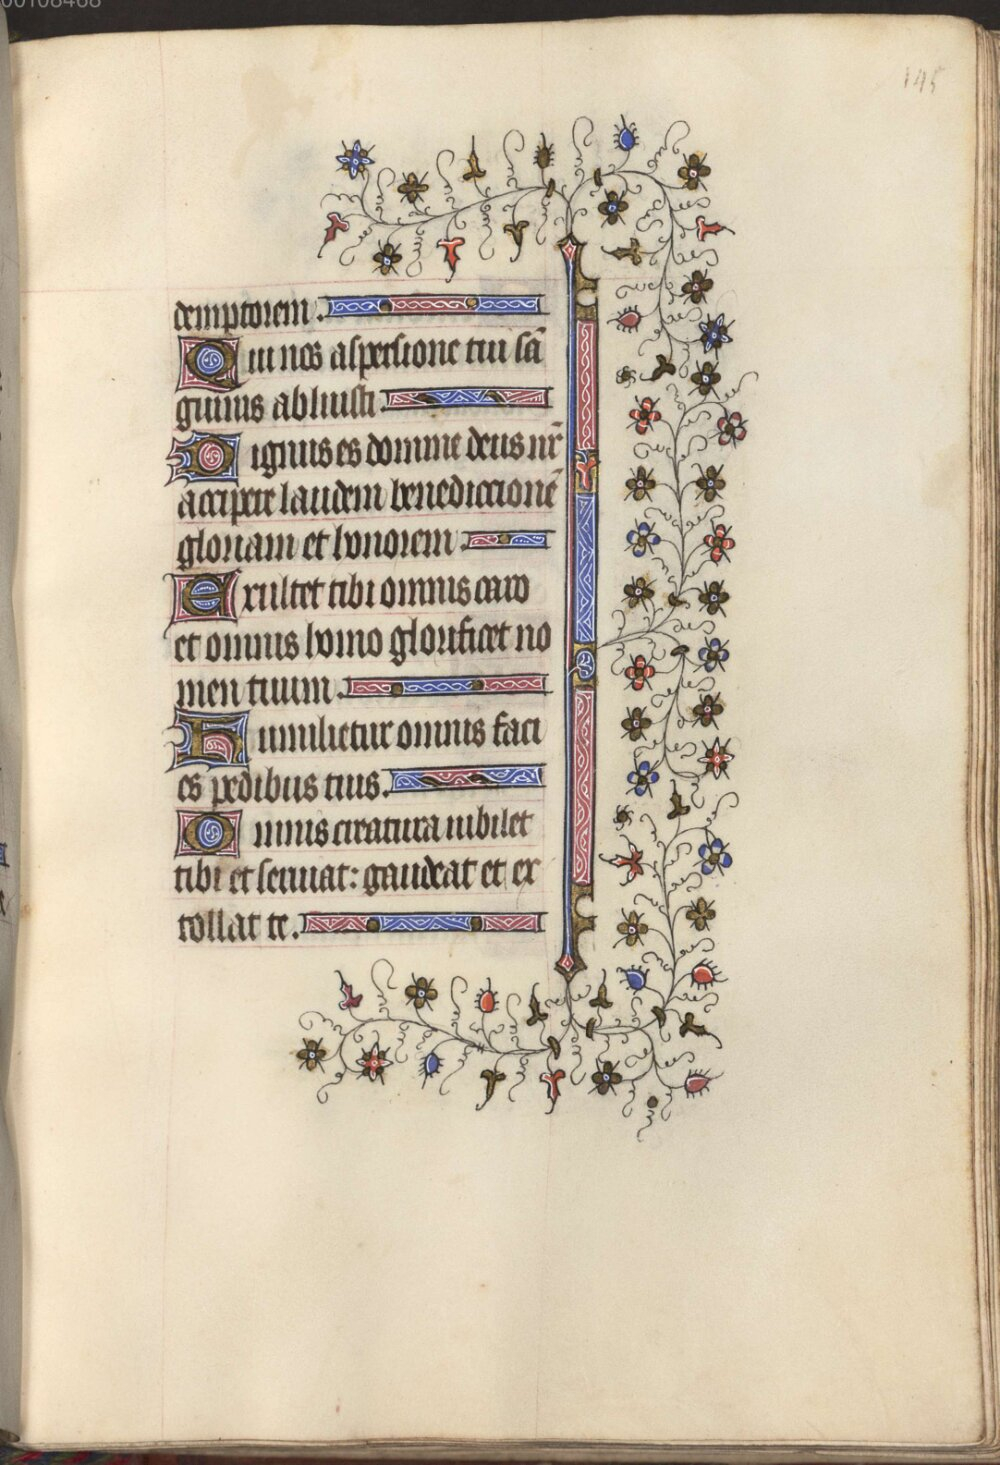 00108468
145
demptorem.
Qui nos aspersione tui sā
guinis abluisti.
Dignus es domine deus nr̄
accipere laudem benediccionē
gloriam et honorem.
Exultet tibi omnis caro
et omnis homo glorificet no
men tuum.
Humilietur omnis faci
es pedibus tuis.
Omnis creatura iubilet
tibi et seruiat: gaudeat et ex
tollat te.